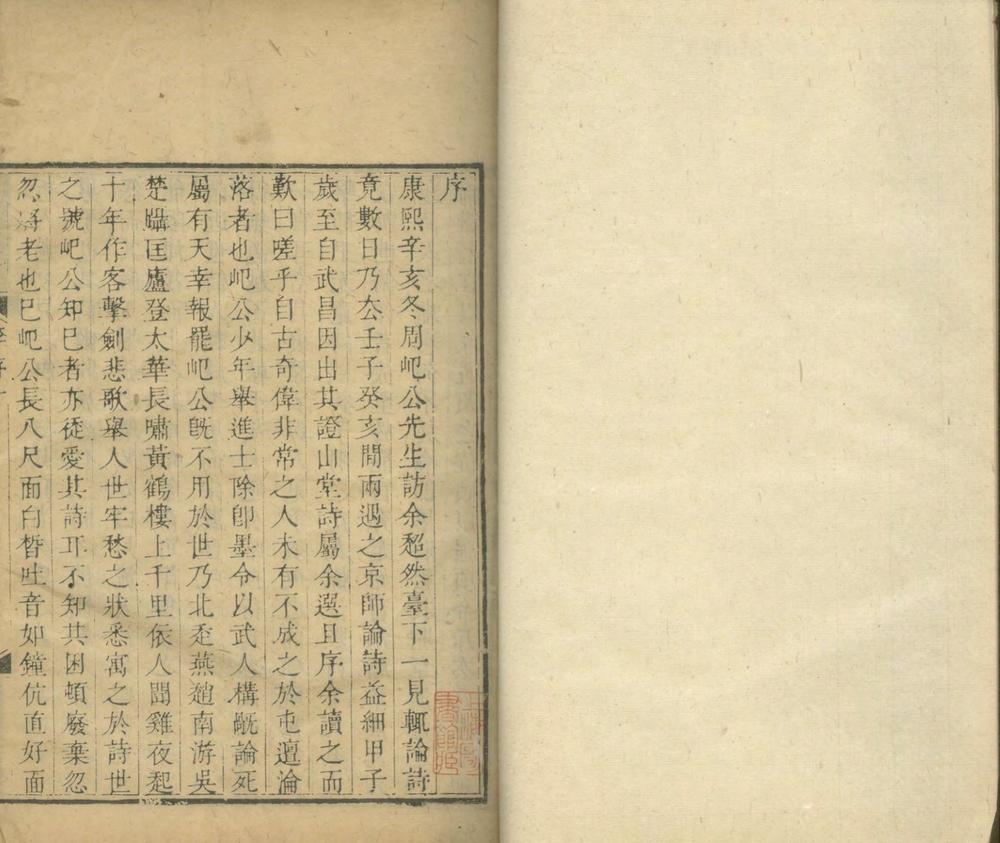 序
康熙辛亥冬周屺公先生訪余超然臺下一見輒論詩
竟數日乃厺壬子癸亥間兩遇之京師論詩益細甲子
歲至自武昌因出其證山堂詩屬余選且序余讀之而
歎曰嗟乎自古奇偉非常之人未有不成之於屯邅淪
落者也屺公少年舉進士除卽墨令以武人構衊論死
屬有天幸報罷屺公旣不用於世乃北走燕趙南游吳
楚躡匡廬登太華長嘯黃鶴樓上千里依人聞雞夜起
十年作客擊劍悲歌舉人世牢愁之狀悉寓之於詩世
之號屺公知巳者亦徒愛其詩耳不知其困頓廢棄忽
忽將老也巳屺公長八尺面白晳吐音如鐘伉直好面